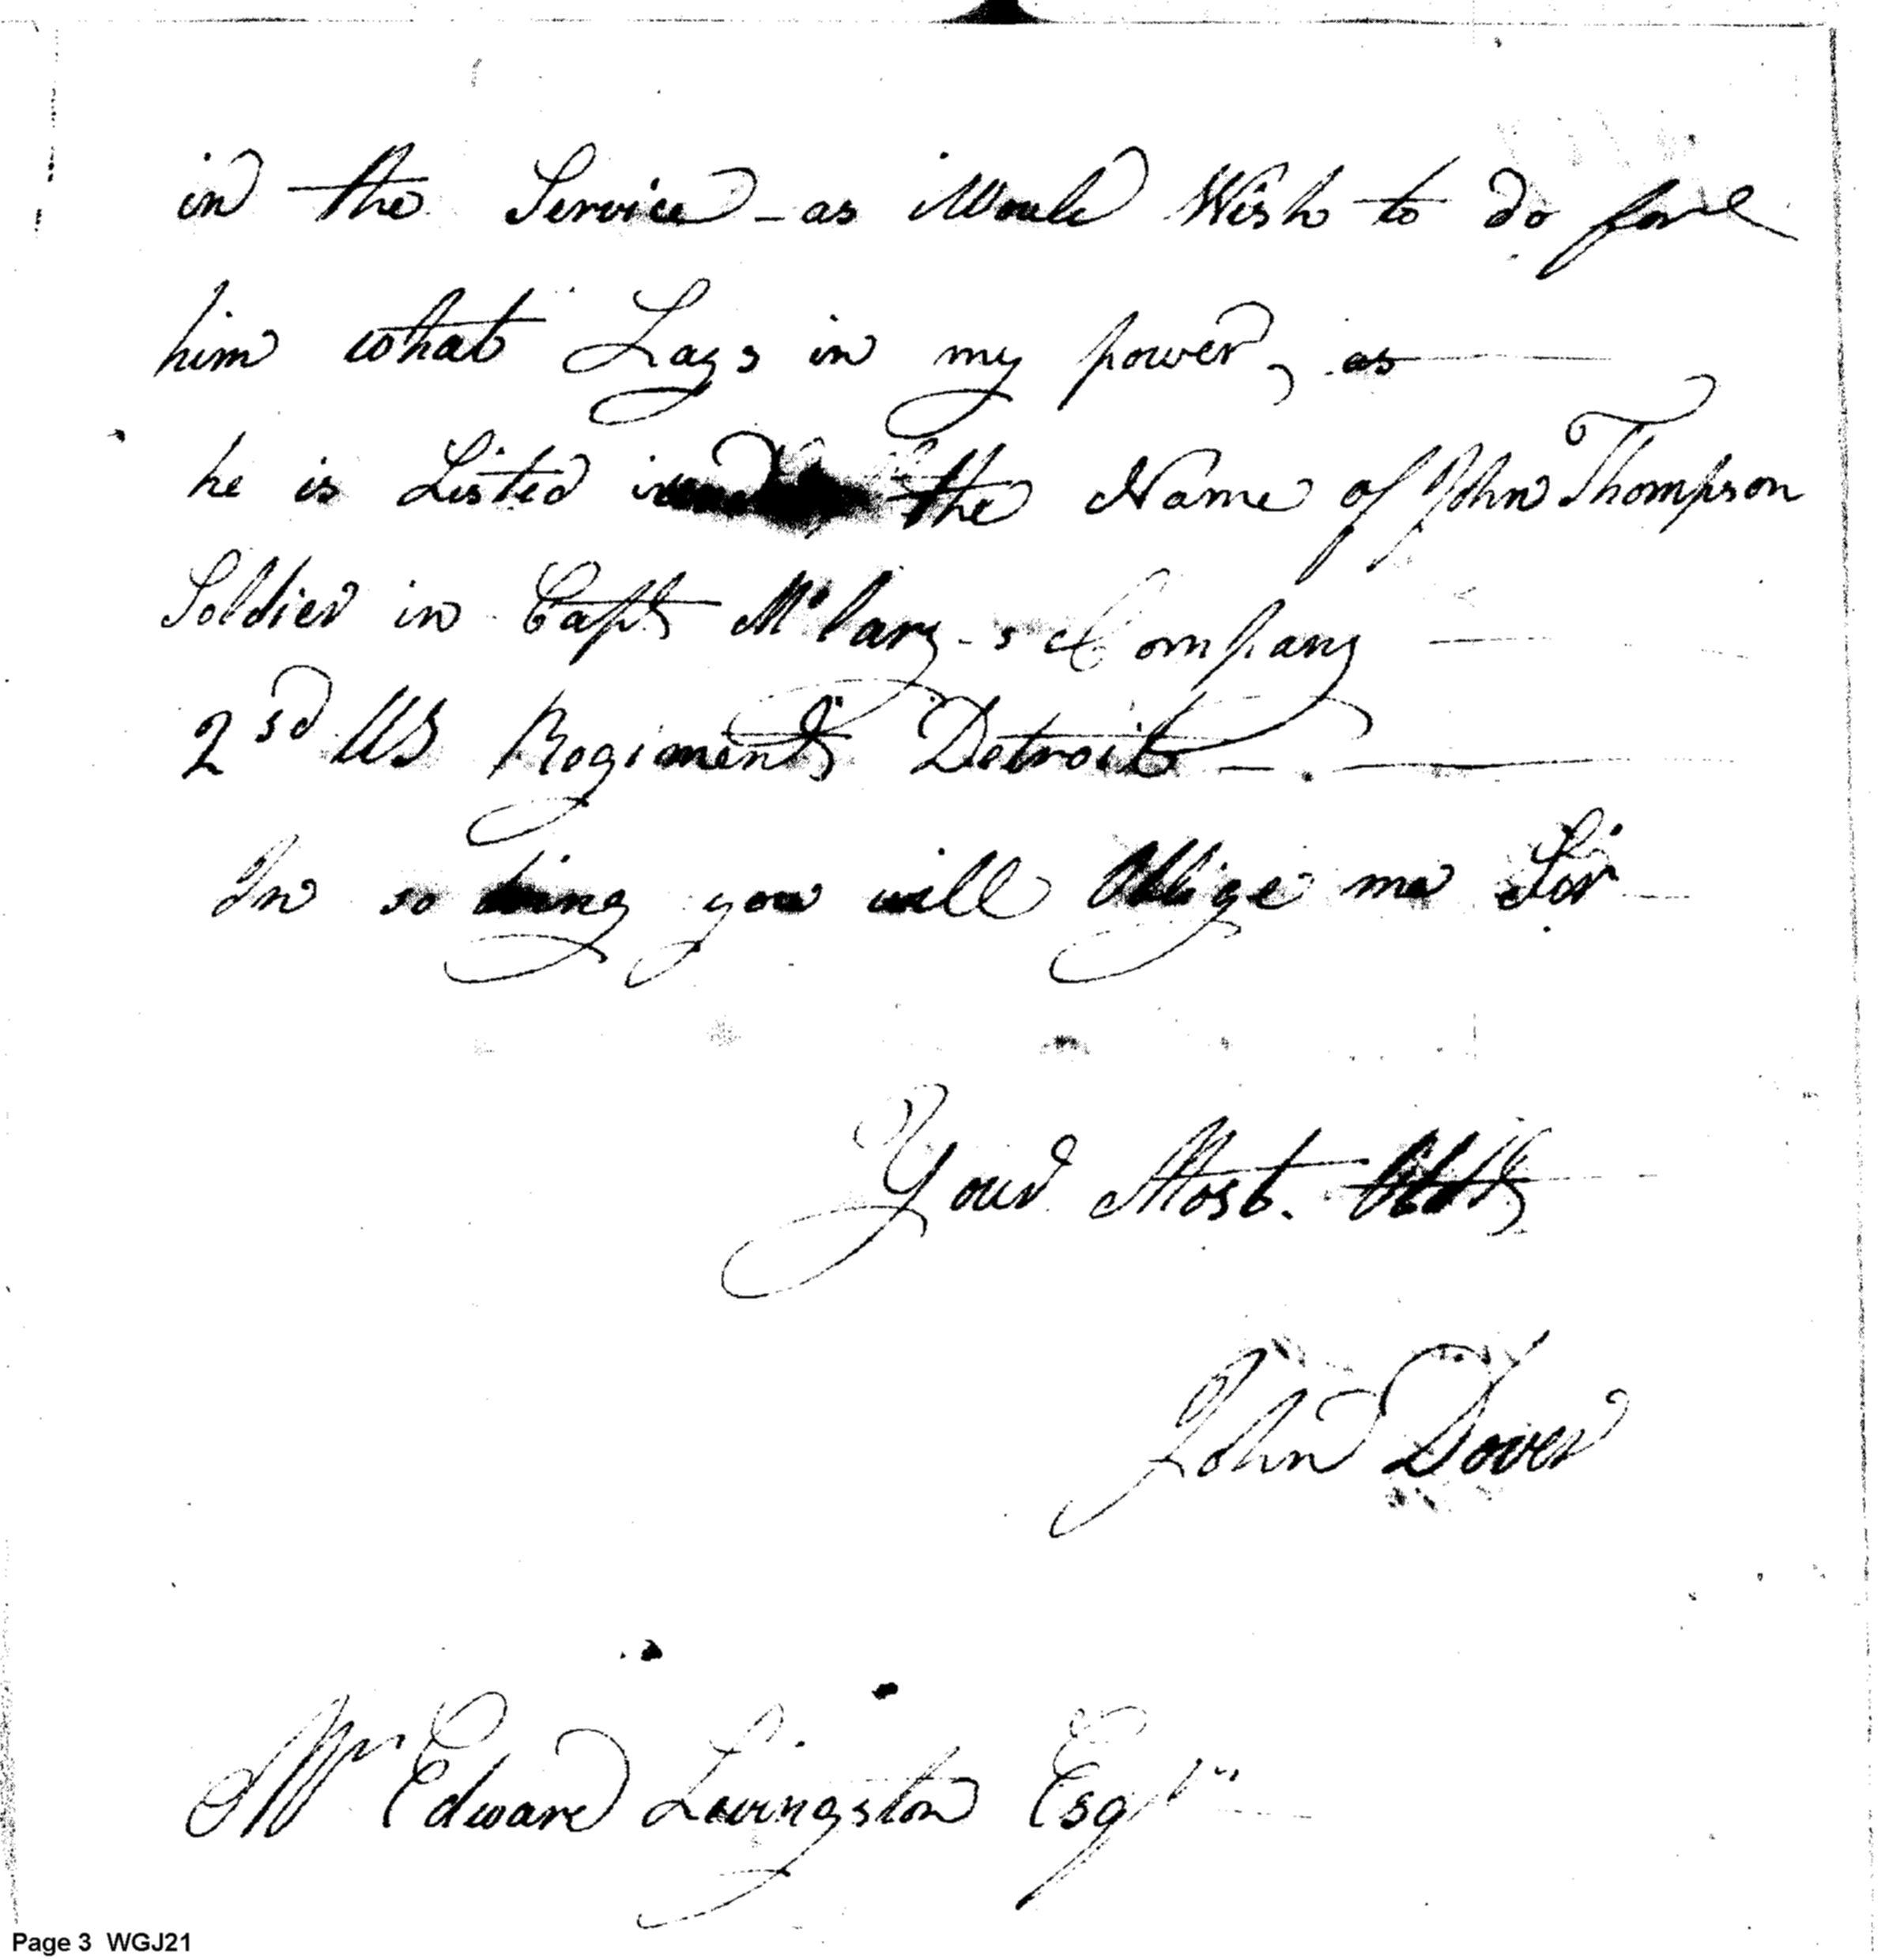 in the Service - as i Would Wish to do for
him what Lays in my power, as
he is Listed in the Name of John Thompson
Soldier in Capt McClary-s Company
2sd US Regiment Detroit - .
In so doing you will Oblige me Sir
Your Most. Obdt
John Dover
Mr Edward Livingston Esqr
Page 3 WGJ21